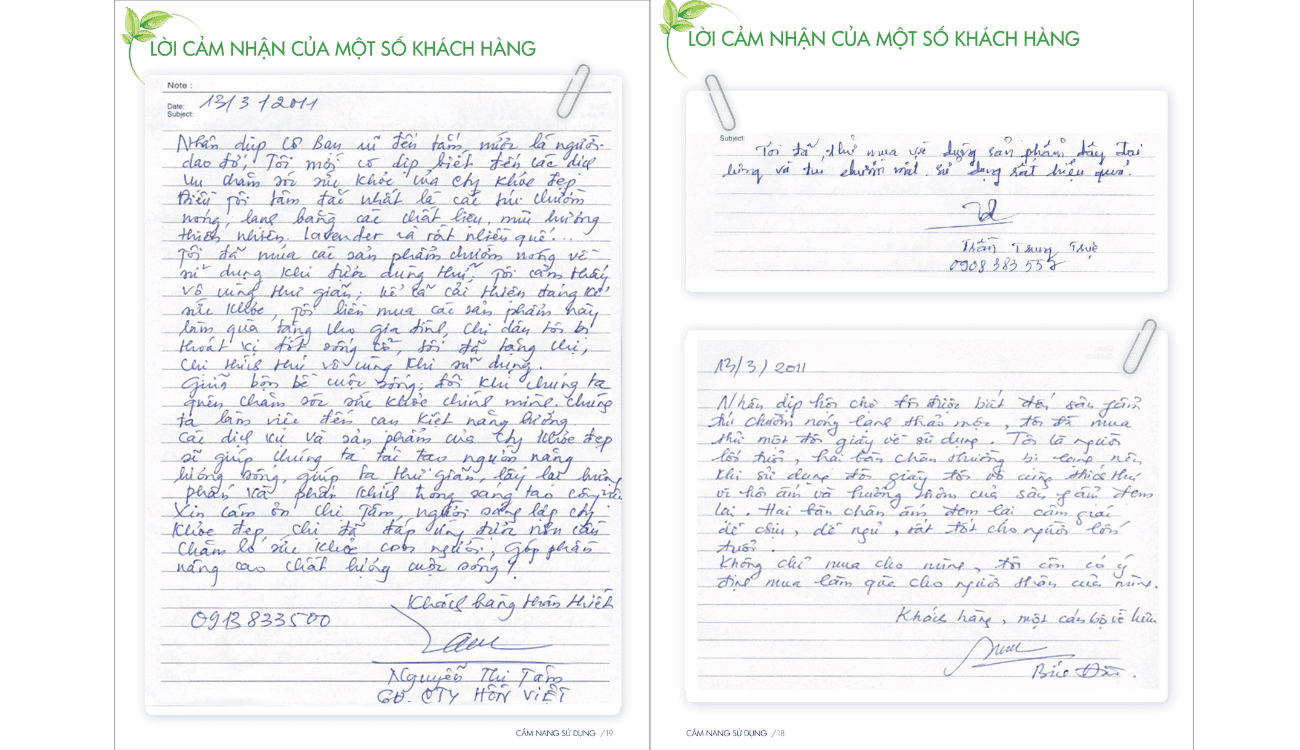 LỜI CẢM NHẬN CỦA MỘT SỐ KHÁCH HÀNG
Note :
Date: 13/3/2011
Subject:
Nhân dịp có bạn đến tắm, là người
dao đỏ, Tôi mới có dịp biết đến các dịch
vụ chăm sóc sức khỏe của Cty Khỏe đẹp
Điều tôi tâm đắc nhất là các túi chườm
nóng, lạnh bằng các chất liệu, mùi hương
thiên nhiên. lavender và rất nhiều quế...
Tôi đã mua các sản phẩm chườm nóng về
sử dụng khi được dùng thử, tôi cảm thấy
vô cùng thư giãn, kể cả cải thiện đáng kể
sức khỏe, tôi liền mua các sản phẩm này
làm quà tặng cho gia đình, chị dâu tôi bị
thoát vị đốt sống cổ, tôi đã tặng chị,
chị thích thú vô cùng khi sử dụng.
Giữa bộn bề cuộc sống, đôi khi chúng ta
quên chăm sóc sức khỏe chính mình. chúng
ta làm việc đến cạn kiệt năng lượng.
Các dịch vụ và sản phẩm của Cty Khỏe đẹp
sẽ giúp chúng ta tái tạo nguồn năng
lượng sống, giúp ta thư giãn, lấy lại hưng
phấn và phấn khích trong sáng tạo công việc
Xin cảm ơn chị Tâm, người sáng lập cty
Khỏe đẹp, chị đã đáp ứng được nhu cầu
chăm lo sức khỏe con người, góp phần
nâng cao chất lượng cuộc sống!
Khách hàng thân thiết
0913833500
Nguyễn Thị Tâm
GĐ. CTY HỒN VIỆT
CẨM NANG SỬ DỤNG /19
LỜI CẢM NHẬN CỦA MỘT SỐ KHÁCH HÀNG
Subject:
Tôi đã thử mua về dụng sản phẩm dây đai
lưng và túi chườm mắt. sử dụng rất hiệu quả.
Trần Trung Trực
0908 383 552
13/3/2011
Nhân dịp hội chợ tôi được biết đến sản phẩm
túi chườm nóng lạnh thảo mộc, tôi đã mua
thử một đôi giày về sử dụng. Tôi là người
lớn tuổi, hai bàn chân thường bị lạnh nên
khi sử dụng đôi giày tôi vô cùng thích thú
vì hơi ấm và hương thơm của sản phẩm đem
lại. Hai bàn chân ấm đem lại cảm giác
dễ chịu, dễ ngủ, rất tốt cho người lớn
tuổi.
Không chỉ mua cho mình, tôi còn có ý
định mua làm quà cho người thân của mình.
Khách hàng, một cán bộ về hưu
CẨM NANG SỬ DỤNG /18